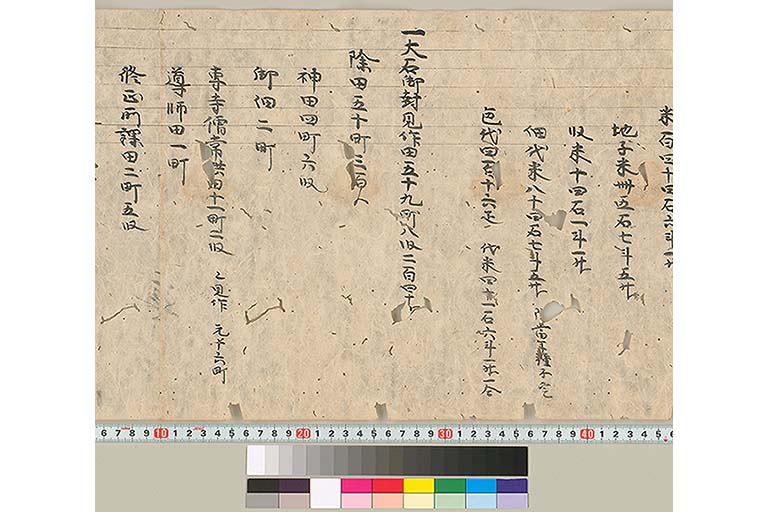 米百四十四石六斗一升
地子米卅五石七斗五升
収米十四石一斗一升
佃代米八十四石七斗五升
色代四百十六疋 代米四十一石六斗一升一合
一大石御封見作田五十九町八段二百四十
除田五十町三百卜
神田四町六段
御佃二町
寺僧常共田十一町二段 見作 元十六町
導師田一町
修正所課田二町五段
6 7 8 9 10 1 2 3 4 5 6 7 8 9 20 1 2 3 4 5 6 7 8 9 30 1 2 3 4 5 6 7 8 9 40 1 2 3 4 5 6